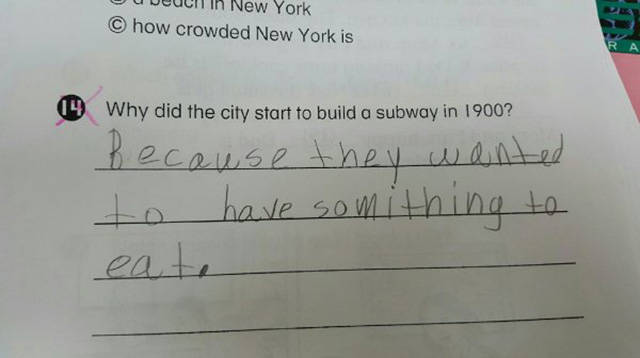 a beach in New York
© how crowded New York is
14 Why did the city start to build a subway in 1900?
Because they wanted
to have somithing to
eat.
R A